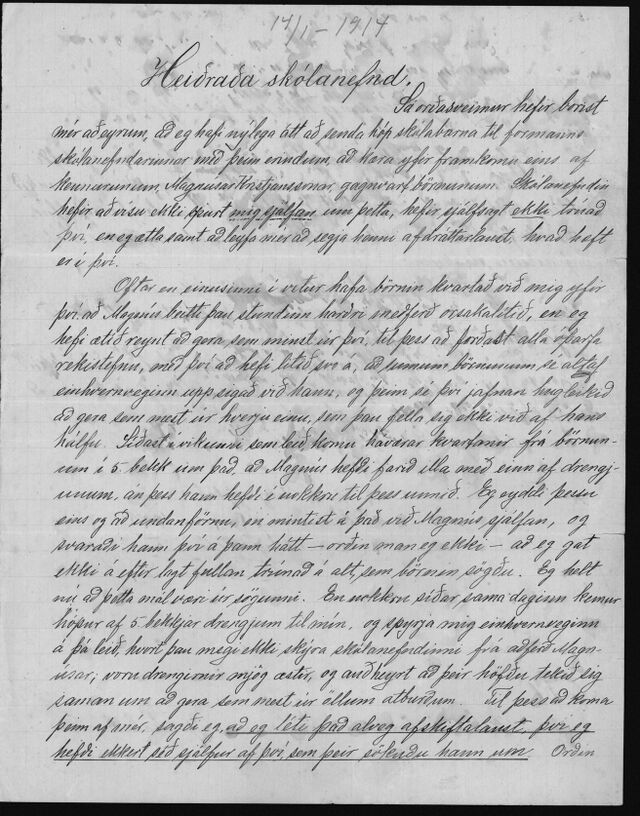 14/1 - 1914
Heiðraða skólanefnd.
Sá orðasveimur hefir borist
mér að eyrum, að eg hafi nýlega átt að senda hóp skólabarna til formanns
skólanefndarinnar með þeim erindum, að kæra yfir framkomu eins af
kennurunum, Magnúsar Kristjánssonar, gagnvart börnunum. Skólanefndin
hefir að vísu ekki spurt mig sjálfan um þetta, hefir sjálfsagt ekki trúað
því, en eg ætla samt að leyfa mér að segja henni afdráttarlaust, hvað hæft
er í því.
Oftar en einusinni í vetur hafa börnin kvartað við mig yfir
því, að Magnús beitti þau stundum harðri meðferð orsakalitið, en eg
hefi ætíð reynt að gera sem minst úr því, til þess að forðast alla óþarfa
rekistefnu, með því að hefi litið svo á, að sumum börnunum sé altaf
einhvernveginn uppsigað við hann, og þeim sé því jafnan hugleikið
að gera sem mest úr hverju einu, sem þau fella sig ekki við af hans
hálfu. Síðast í vikunni sem leið komu háværar kvartanir frá börnun-
um í 5. bekk um það, að Magnús hefði farið illa með einn af drengj-
unum, án þess hann hefði í nokkru til þess unnið. Eg eyddi þessu
eins og að undanförnu, en mintist á það við Magnús sjálfan, og
svaraði hann því á þann hátt – orðin man eg ekki – að eg gat
ekki á eftir lagt fullan trúnað á alt, sem börnin sögðu. Eg helt
nú að þetta mál væri úr sögunni. En nokkru síðar sama daginn kemur
hópur af 5. bekkjar drengjum til mín, og spyrja mig einhvernveginn
á þá leið, hvort þau megi ekki skýra skólanefndinni frá aðferð Magn-
úsar, voru drengirnir mjög æstir, og auðheyrt að þeir höfðu tekið sig
saman um að gera sem mest úr öllum atburðum. Til þess að koma
þeim af mér, sagði eg, að eg léti það alveg afskiftalaust, því eg
hefði ekkert séð sjálfur af því, sem þeir sökuðu hann um. Orðin